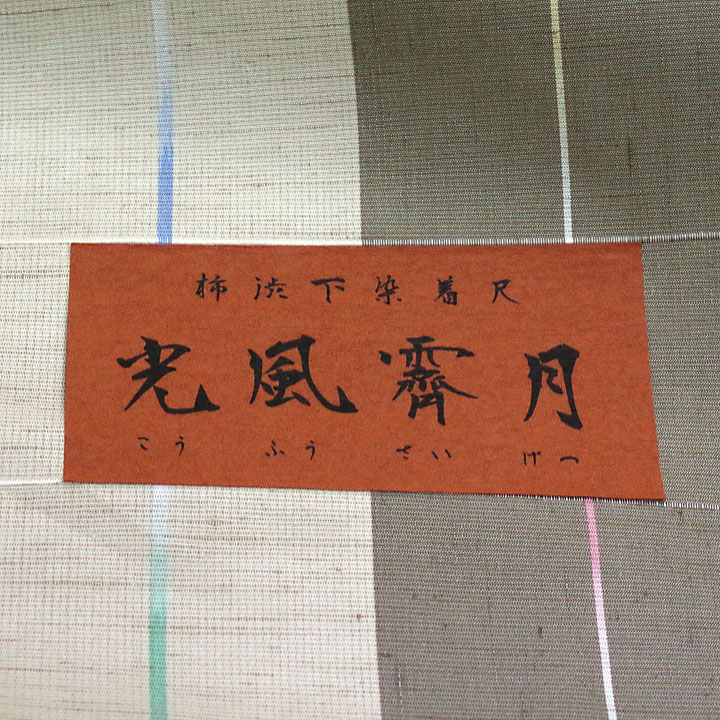 柿渋下染着尺
光風霽月
こうふうさいげつ